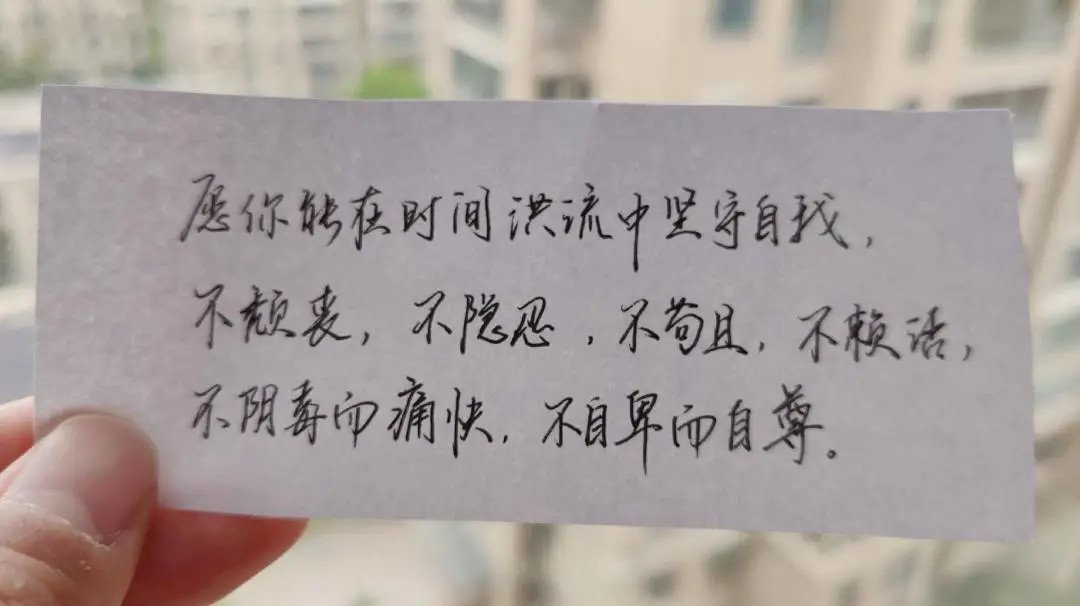 愿你能在时间洪流中坚守自我，
不颓丧，不隐忍，不苟且，不赖活，
不阴毒而痛快，不自卑而自尊。